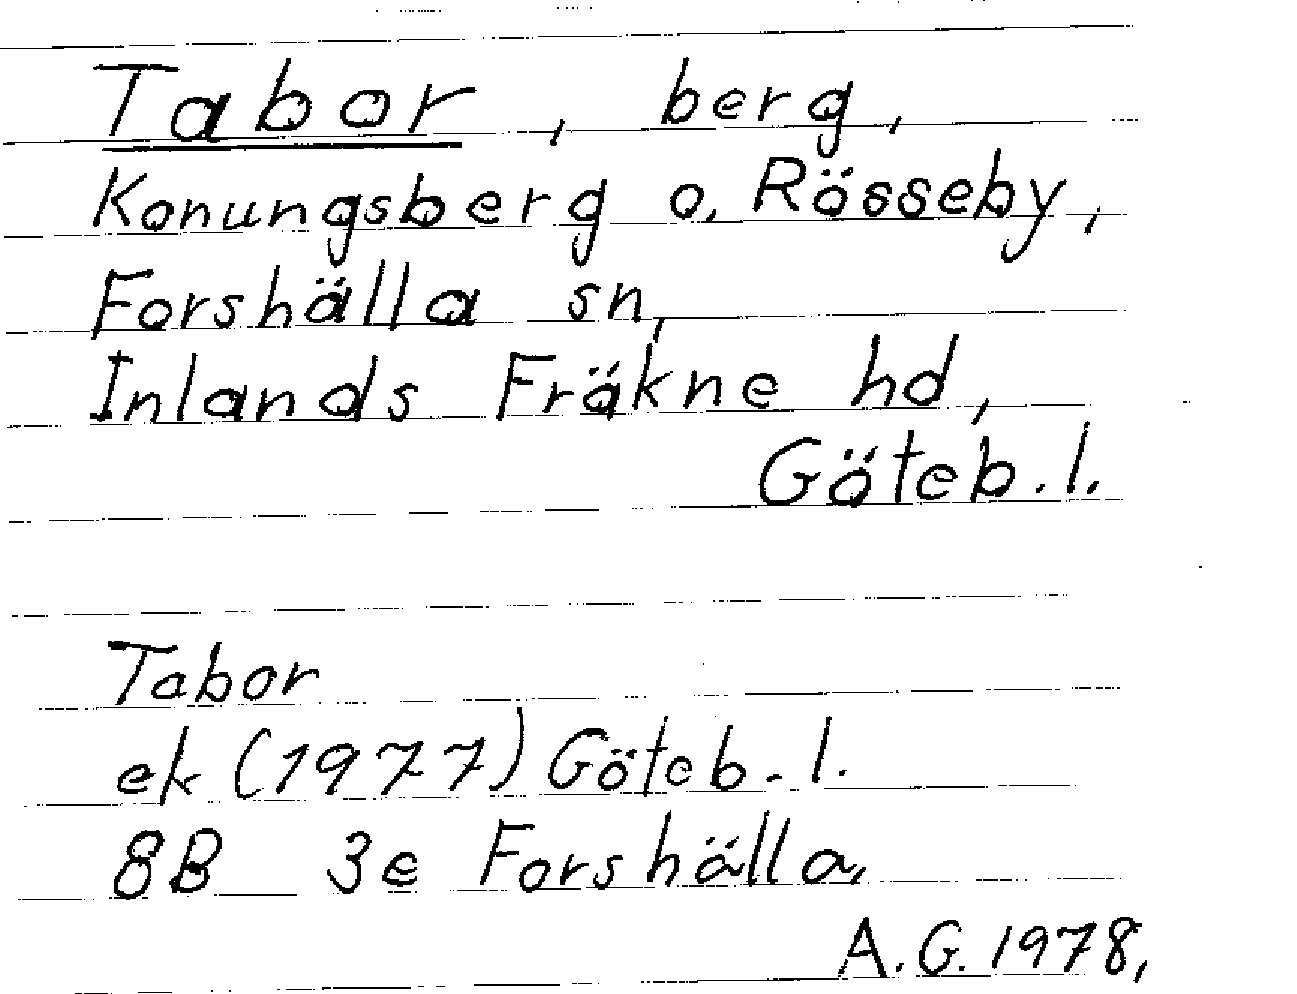 Tabor, berg,
Konungsberg o. Rösseby,
Forshälla sn,
Inlands Fräkne hd,
Göteb. l.
Tabor
ek (1977) Göteb. l.
8B 3e Forshälla
A.G. 1978,